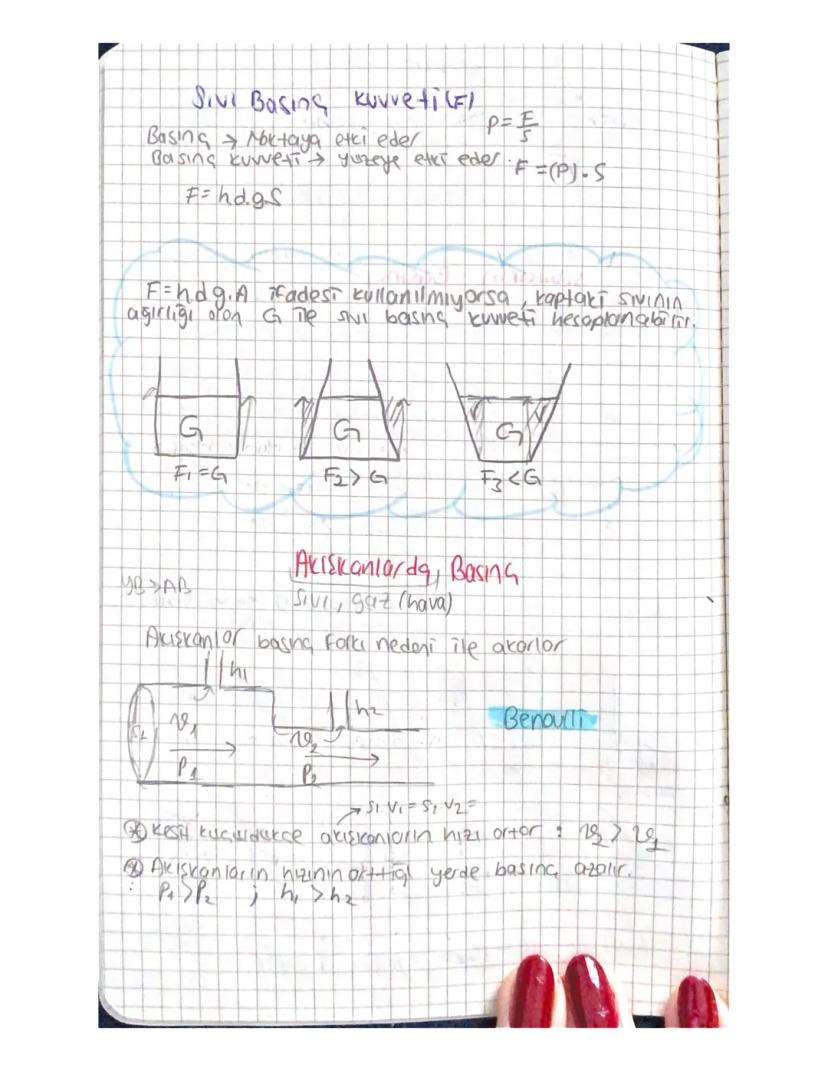 Sıvı Basınç kuvveti (F)
P = F/S
Basınç → Noktaya etki eder
Basınç kuvveti → yüzeye etki eder. F = (P) . S
F = h.d.g.S
F = h.d g.A ifadesi kullanılmıyorsa, kaptaki sıvının
ağırlığı olan G ile sıvı basınç kuvveti hesaplanabilir.
G G G
F1 = G F2 > G F3 < G
Akışkanlarda Basınç
YB > AB
Sıvı, gaz (hava)
Akışkanlar basınç farkı nedeni ile akarlar
h1
h2
Benoulli
v1
v2
P1
P2
→ S1.V1 = S2.V2 =
Kesit küçüldükce akışkanların hızı artar : v2 > v1
Akışkanların hızının arttığı yerde basınç azalır.
P1 > P2 ; h1 > h2